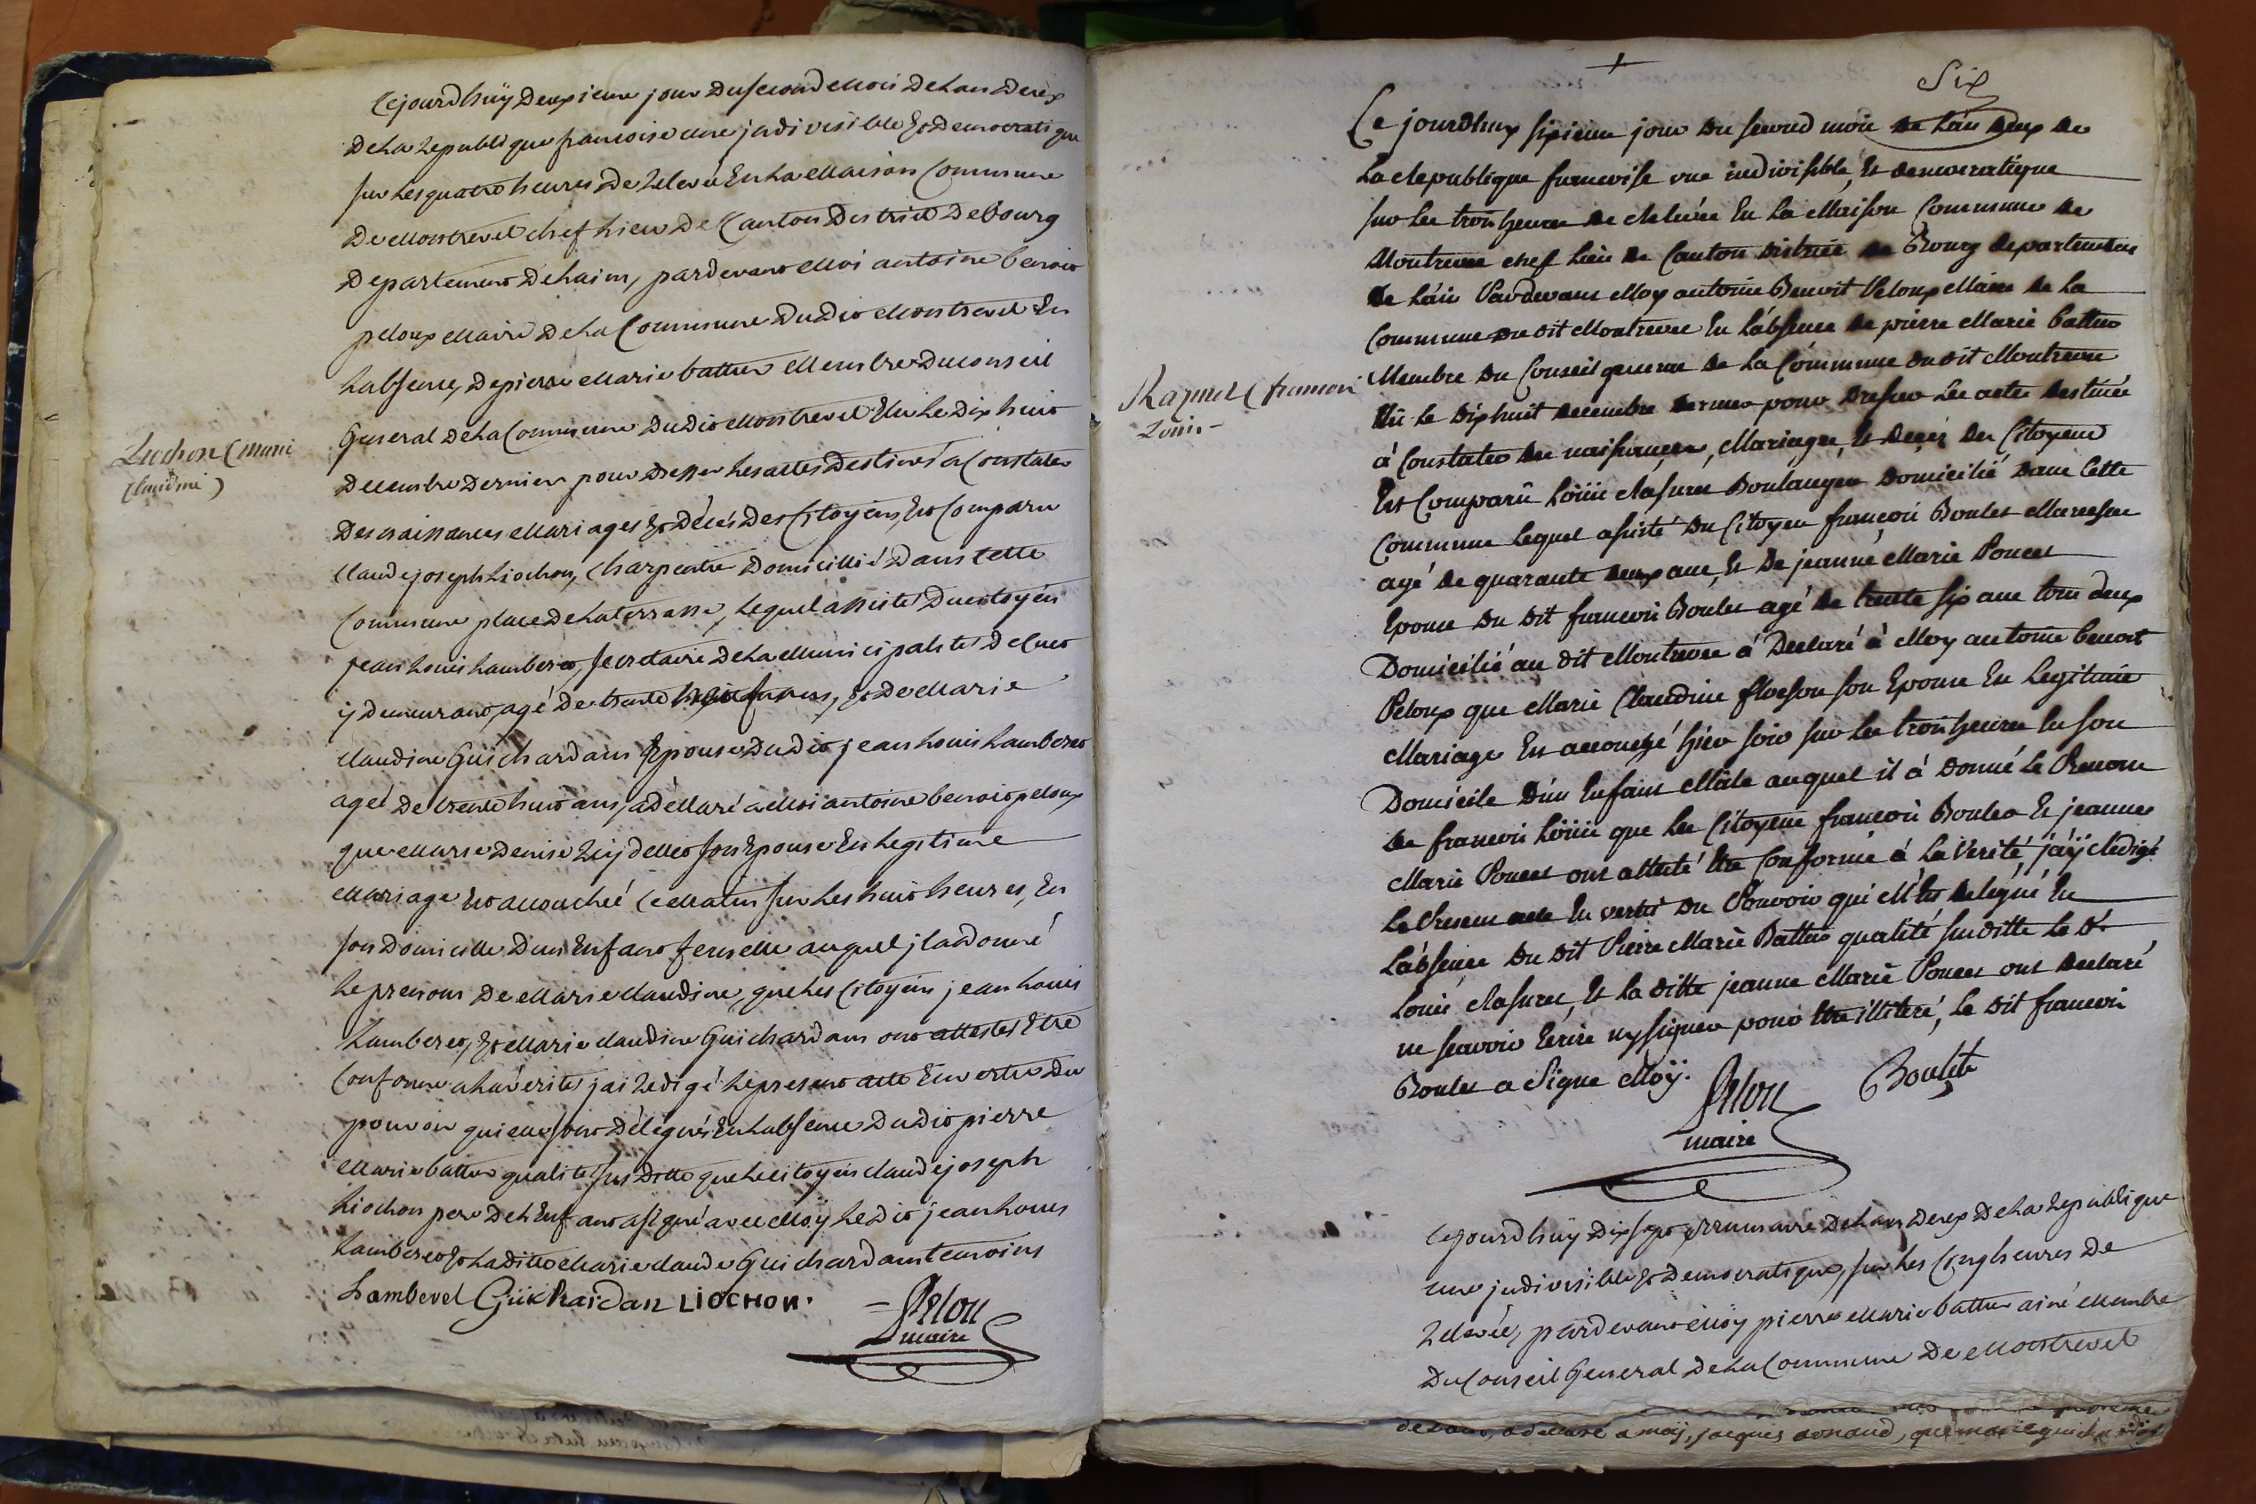 Cejourdhuÿ Deuxieme jour Dusecond Mois Delan Deux
Dela Republique francoise une jndivisible Et Democratique
sur Les quatre heures De Relevée En La Maison Commune
De Montrevel chef Lieu De Canton District De bourg
Departement De Lain, pardevant Moi antoine benoit
peloux Maire De La Commune Dudit Montrevel En
Labsence, De pierre Marie battur Membre Du Conseil
General De La Commune Dudit Montrevel Elu Le Dix huit
Decembre Dernier pour Dresser Les actes Destinés a Constater
Des naissances Mariages Et Décés Des Citoyens, Est Comparu
Claude joseph Liochon, Charpentier Domicillié Dans Cette
Commune place De La terrasse, Lequel assisté Du citoyen
jean Louis Lamberet, secretaire De La Municipalité De
ÿ Demeurant, agé De trente ans, Et De Marie
Claudine Guichardan Epouse Dudit jean Louis Lamberet
ageé De trente huit ans, a Déclaré a Moi antoine benoit peloux
que Marie Denise son Epouse En Legitime
Mariage Est accouchée Ce Matin sur Les huit heures, En
son Domicille D'un Enfant femelle auquel jl a Donné
Le prenom De Marie Claudine, que Les Citoyens jean Louis
Lamberet, Et Marie Claudine Guichardan ont attestés Etre
Conforme a La vérité jai Redigé Le present acte En vertu Du
pouvoir qui me sont Délégués En Labsence Dudit pierre
Marie battur qualité susditte que Le citoyen claude joseph
Liochon pere De L'Enfant a signé avec Moÿ Le Dit jean Louis
Lamberet Et La ditte Marie claude Guichardan temoins
Lamberel Guichardan LIOCHON.
Pelou
maire
Liochon (marie
Claudine)
Six
Ce jourdhuy sixieme jour du second mois de L'an deux de
La Republique francoise une indivisible, Et democratique
sur les trois heures de Relevée En La Maison Commune de
Montrevel chef Lieu de Canton district de Bourg departement
de L'ain Pardevant Moy antoine Benoit Peloux Maire de La
Commune du dit Montrevel En L'absence de pierre Marie battur
Membre du Conseil general de La Commune du dit Montrevel
Elû le dix huit decembre dernier pour dresser Les actes destinés
à Constater des naissances, Mariages, Et decés des Citoyens
Est Comparû Loüis Rasurel Boulanger Domicilié dans Cette
Commune Lequel assisté du Citoyen francois Boulet
agé de quarante deux ans, Et de jeanne Marie Poncet
Epouse du dit francois Boulet agé de trente six ans tous deux
Domicilié au dit Montrevel à Declaré à Moy antoine benoit
Peloux que Marie Claudine son Epouse En Legitime
Mariage Est accouchée hier soir sur les trois heures En son
Domicile D'un Enfant Mâle auquel il à donné Le Prenom
de francois Loüis que les Citoyens francois Boulet Et jeanne
Marie Poncet ont attesté Etre Conforme à La Verité j'aÿ Redigé
Le Present acte En vertu du Pouvoir qui M'est delegué En
L'absence du dit Pierre Marie Battur qualité susditte Le dt.
Loüis Rasurel, Et la ditte jeanne Marie Poncet ont declaré
ne scavoir Ecrire ny signer pour Etre illiteré, Le dit francois
Boulet a Signe Moÿ.
Pelou
maire
Boulet
Rasurel (francois
Louis
Cejourdhuÿ Dixsept Brumaire De Lan Deux De La Republique
une jndivisible Et Democratique, sur Les Cinq heures De
Relevée, pardevant Moÿ pierre Marie battur ainé Membre
Du Conseil General De La Commune De Montrevel
a declaré a moÿ, jacques, que marie